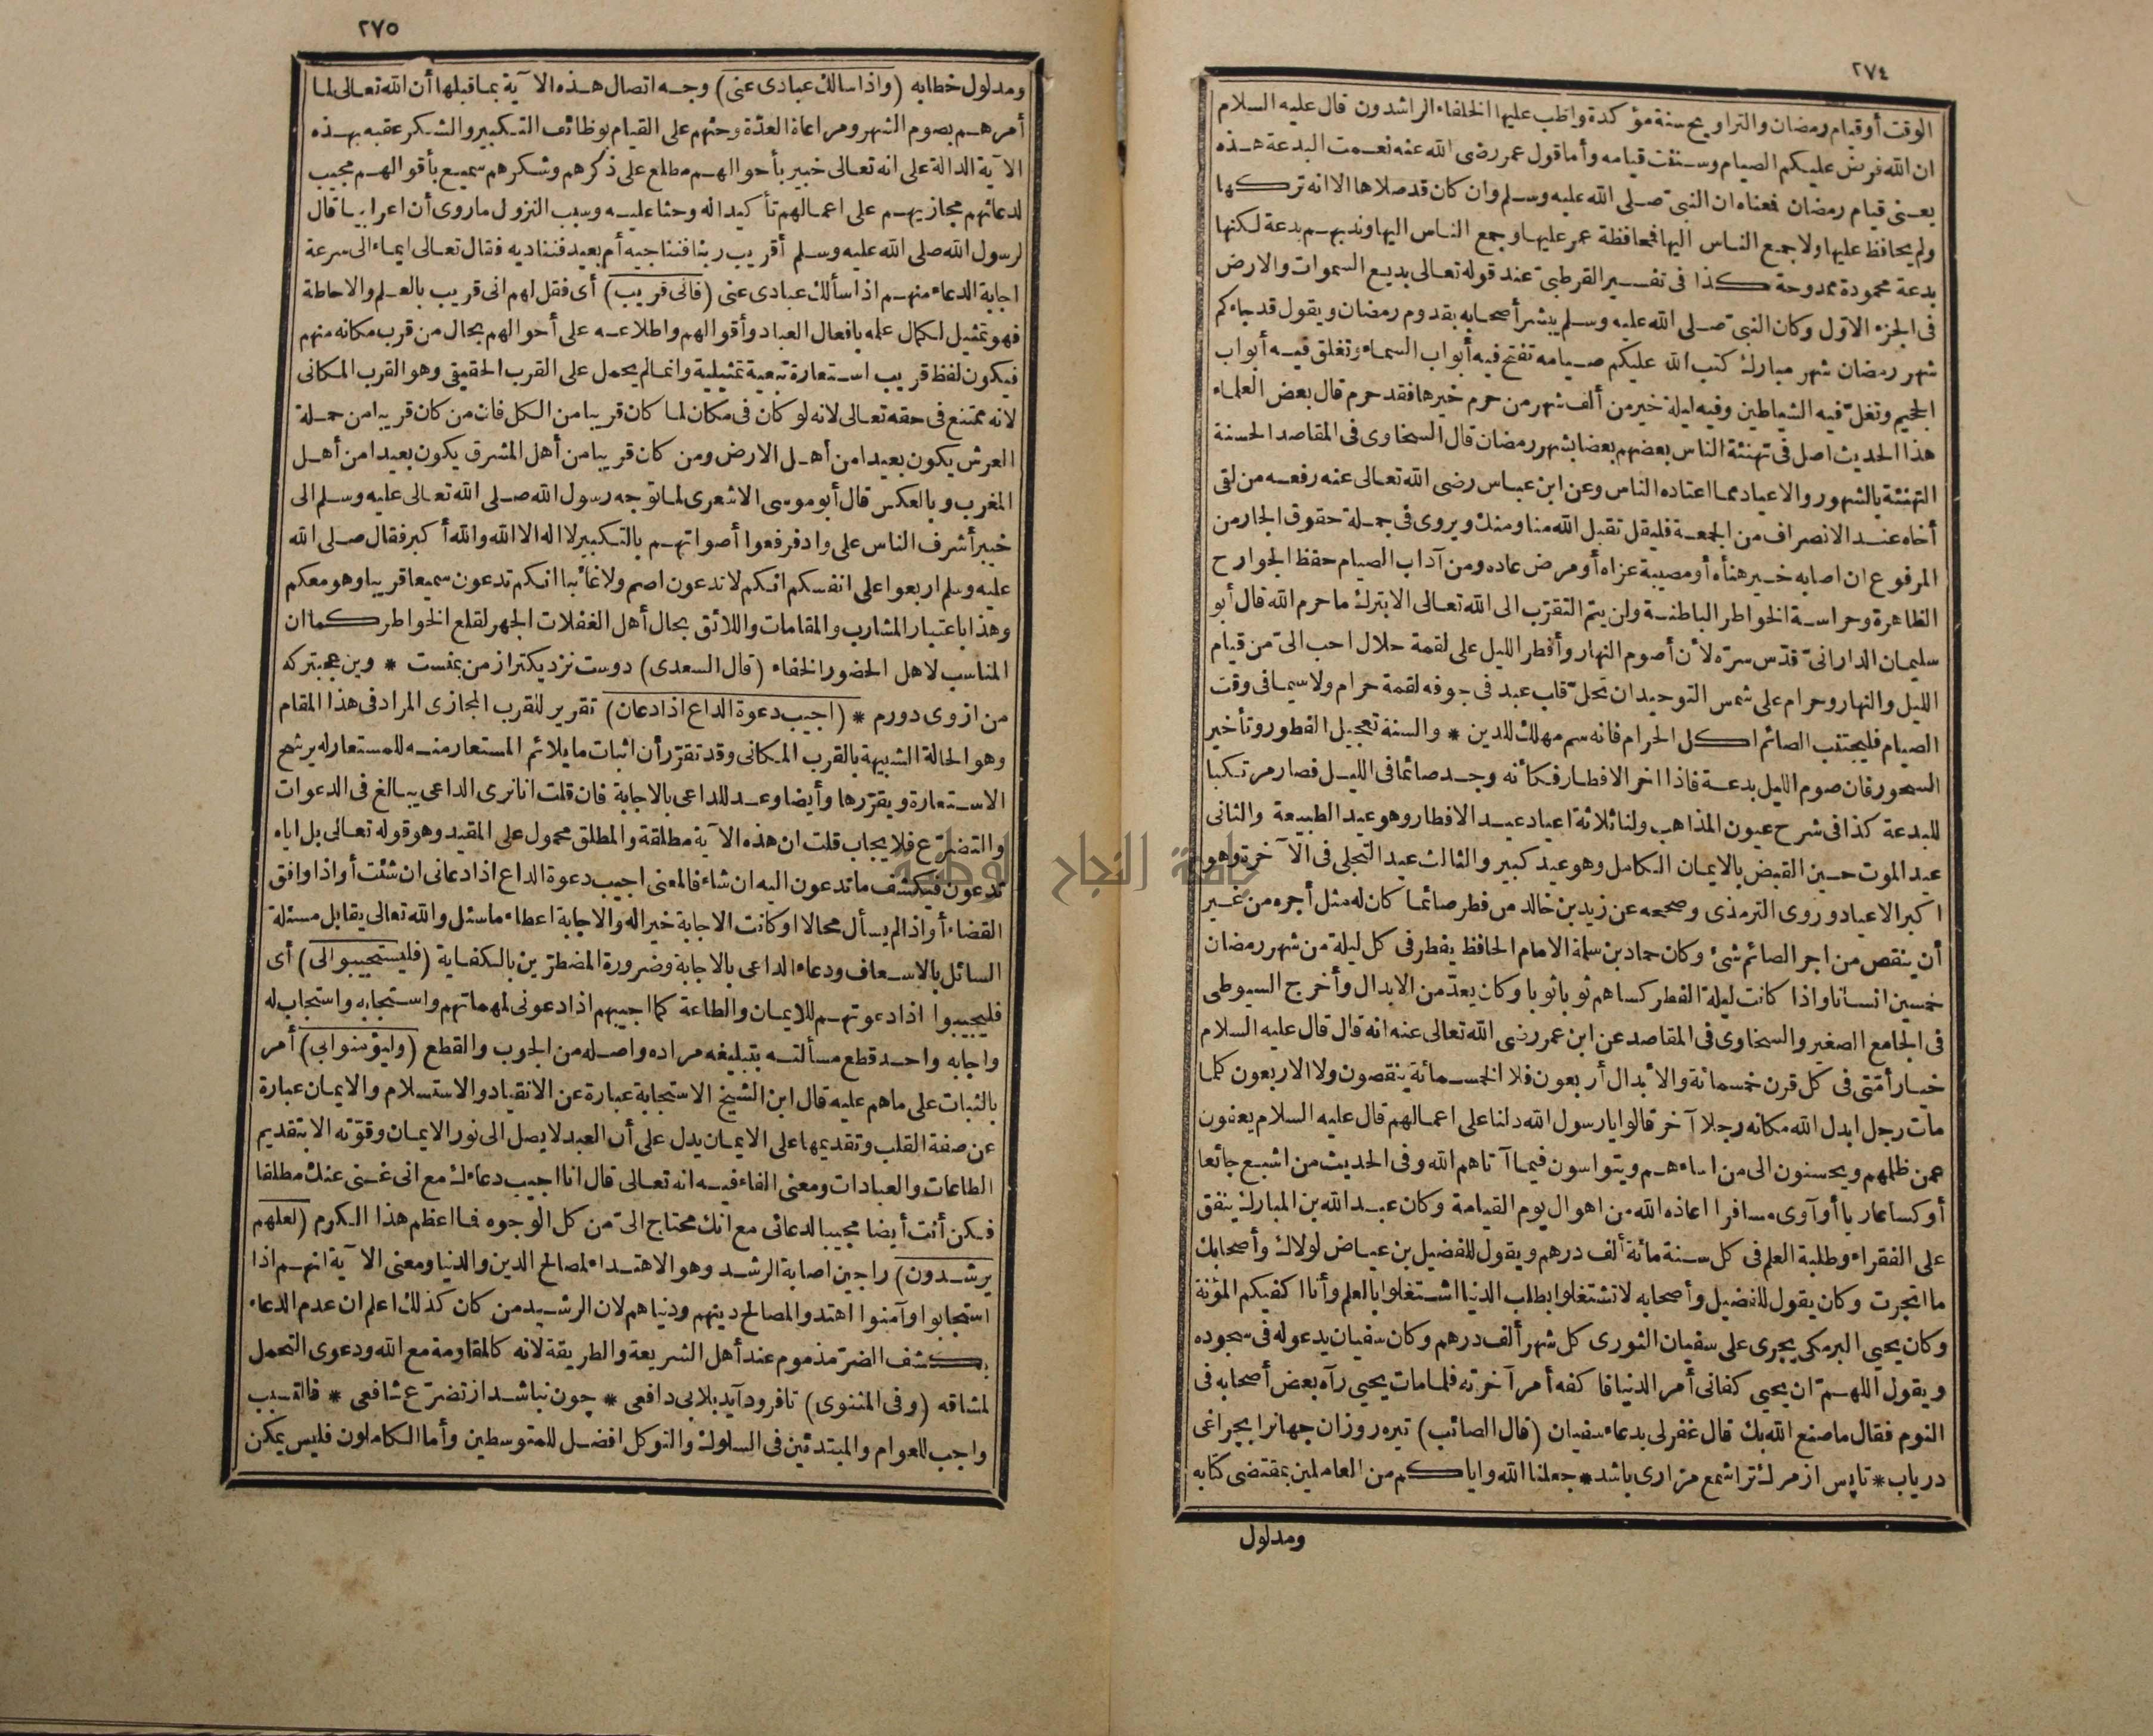 ٢٧٤
الوقت أو قيام رمضان والتراويح سنة مؤكدة واظب عليها الخلفاء الراشدون قال عليه السلام
ان الله فرض عليكم الصيام وسننت قيامه وأما قول عمر رضى الله عنه نعمت البدعة هذه
يعنى قيام رمضان فمعناه ان النبى صلى الله عليه وسلم وان كان قد صلاها الا انه تركها
ولم يحافظ عليها ولا جمع الناس اليها فمحافظة عمر عليها وجمع الناس اليها وندبهم بدعة لكنها
بدعة محمودة ممدوحة كذا فى تفسير القرطبى عند قوله تعالى بديع السموات والارض
فى الجزء الاوّل وكان النبىّ صلى الله عليه وسلم يبشر أصحابه بقدوم رمضان ويقول قد جاءكم
شهر رمضان شهر مبارك كتب الله عليكم صيامه تفتح فيه أبواب السماء وتغلق فيه أبواب
الجحيم وتغلّ فيه الشياطين وفيه ليلة خير من ألف شهر من حرم خيرها فقد حرم قال بعض العلماء
هذا الحديث اصل فى تهنئة الناس بعضهم بعضا بشهر رمضان قال السخاوى فى المقاصد الحسنة
التهنئة بالشهور والاعياد مما اعتاده الناس وعن ابن عباس رضى الله تعالى عنه رفعه من لقى
أخاه عند الانصراف من الجمعة فليقل تقبل الله منا ومنك ويروى فى جملة حقوق الجار من
المرفوع ان اصابه خير هنأه أو مصيبة عزاه أو مرض عاده ومن آداب الصيام حفظ الجوارح
الظاهرة وحراسة الخواطر الباطنة ولن يتم التقرّب الى الله تعالى الا بترك ما حرم الله قال أبو
سليمان الدارانىّ قدّس سرّه لأن أصوم النهار وأفطر الليل على لقمة حلال احب الىّ من قيام
الليل والنهار وحرام على شمس التوحيد ان تحلّ قلب عبد فى جوفه لقمة حرام ولا سيما فى وقت
الصيام فليجتنب الصائم اكل الحرام فانه سم مهلك للدين * والسنة تعجيل الفطور وتأخير
السحور فان صوم الليل بدعة فاذا اخر الافطار فكأنه وجد صائما فى الليل فصار مرتكبا
للبدعة كذا فى شرح عيون المذاهب ولنا ثلاثة اعياد عيد الافطار وهو عيد الطبيعة والثانى
عيد الموت حين القبض بالايمان الكامل وهو عيد كبير والثالث عيد التجلى فى الآخرة وهو
اكبر الاعياد وروى الترمذى وصححه عن زيد بن خالد من فطر صائما كان له مثل أجره من غير
أن ينقص من اجر الصائم شئ وكان حماد بن سلمة الامام الحافظ يفطر فى كل ليلة من شهر رمضان
خمسين انسانا واذا كانت ليلة الفطر كساهم ثوبا ثوبا وكان يعدّ من الابدال وأخرج السيوطى
فى الجامع الصغير والسخاوى فى المقاصد عن ابن عمر رضى الله تعالى عنه انه قال قال عليه السلام
خيار أمّتى فى كل قرن خمسمائة والأبدال أربعون فلا الخمسمائة ينقصون ولا الاربعون كلما
مات رجل ابدل الله مكانه رجلا آخر قالوا يا رسول الله دلنا على اعمالهم قال عليه السلام يعفون
عمن ظلمهم ويحسنون الى من اساءهم ويتواسون فيما آتاهم الله وفى الحديث من اشبع جائعا
أو كسا عاريا أو آوى مسافرا اعاذه الله من اهوال يوم القيامة وكان عبد الله بن المبارك ينفق
على الفقراء وطلبة العلم فى كل سنة مائة ألف درهم ويقول للفضيل بن عياض لولاك وأصحابك
ما اتجرت وكان يقول للفضيل وأصحابه لا تشتغلوا بطلب الدنيا اشتغلوا بالعلم وأنا اكفيكم المؤنة
وكان يحيى البرمكى يجرى على سفيان الثورى كل شهر ألف درهم وكان سفيان يدعو له فى سجوده
ويقول اللهمّ ان يحيى كفانى أمر الدنيا فاكفه أمر آخرته فلما مات يحيى رآه بعض أصحابه فى
النوم فقال ما صنع الله بك قال غفر لى بدعاء سفيان (قال الصائب) تيره روزان جهانرا بچراغى
درياب * تا پس از مرك ترا شمع مزارى باشد * جعلنا الله واياكم من العاملين بمقتضى كتابه
ومدلول
٢٧٥
ومدلول خطابه (واذا سالك عبادى عنى) وجه اتصال هذه الآية بما قبلها أن الله تعالى لما
أمرهم بصوم الشهر ومراعاة العدّة وحثهم على القيام بوظائف التكبير والشكر عقبه بهذه
الآية الدالة على انه تعالى خبير بأحوالهم مطلع على ذكرهم وشكرهم سميع بأقوالهم مجيب
لدعائهم مجازيهم على اعمالهم تأكيدا له وحثا عليه وسبب النزول ما روى أن اعرابيا قال
لرسول الله صلى الله عليه وسلم أقريب ربنا فنناجيه أم بعيد فنناديه فقال تعالى ايماء الى سرعة
اجابة الدعاء منهم اذا سألك عبادى عنى (فانى قريب) أى فقل لهم انى قريب بالعلم والاحاطة
فهو تمثيل لكمال علمه بافعال العباد وأقوالهم واطلاعه على أحوالهم بحال من قرب مكانه منهم
فيكون لفظ قريب استعارة تبعية تمثيلية وانما لم يحمل على القرب الحقيقى وهو القرب المكانى
لانه ممتنع فى حقه تعالى لانه لو كان فى مكان لما كان قريبا من الكل فان من كان قريبا من حملة
العرش يكون بعيدا من أهل الارض ومن كان قريبا من أهل المشرق يكون بعيدا من أهل
المغرب وبالعكس قال أبو موسى الاشعرى لما توجه رسول الله صلى الله تعالى عليه وسلم الى
خيبر أشرف الناس على واد فرفعوا أصواتهم بالتكبير لا اله الا الله والله أكبر فقال صلى الله
عليه وسلم اربعوا على انفسكم انكم لا تدعون اصم ولا غائبا انكم تدعون سميعا قريبا وهو معكم
وهذا باعتبار المشارب والمقامات واللائق بحال أهل الغفلات الجهر لقلع الخواطر كما ان
المناسب لاهل الحضور الخفاء (قال السعدى) دوست نزديكتر از من بمنست * وين عجبتر كه
من از وى دورم * (اجيب دعوة الداع اذا دعان) تقرير للقرب المجازى المراد فى هذا المقام
وهو الحالة الشبيهة بالقرب المكانى وقد تقرّر أن اثبات ما يلائم المستعار منه للمستعار له يرشح
الاستعارة ويقرّرها وأيضا وعد للداعى بالاجابة فان قلت انا نرى الداعى يبالغ فى الدعوات
والتضرّع فلا يجاب قلت ان هذه الآية مطلقة والمطلق محمول على المقيد وهو قوله تعالى بل اياه
تدعون فيكشف ما تدعون اليه ان شاء فالمعنى اجيب دعوة الداع اذا دعانى ان شئت أو اذا وافق
القضاء أو اذا لم يسأل محالا او كانت الاجابة خيرا له والاجابة اعطاء ما سئل والله تعالى يقابل مسئلة
السائل بالاسعاف ودعاء الداعى بالاجابة وضرورة المضطرّين بالكفاية (فليستجيبوا لى) أى
فليجيبوا اذا دعوتهم للايمان والطاعة كما اجيبهم اذا دعونى لمهماتهم واستجابه واستجاب له
واجابه واحد قطع مسألته بتبليغه مراده واصله من الجوب والقطع (وليؤمنوا بى) أمر
بالثبات على ما هم عليه قال ابن الشيخ الاستجابة عبارة عن الانقياد والاستسلام والايمان عبارة
عن صفة القلب وتقديمها على الايمان يدل على أن العبد لا يصل الى نور الايمان وقوّته الا بتقديم
الطاعات والعبادات ومعنى الفاء فيه انه تعالى قال انا اجيب دعاءك مع انى غنى عنك مطلقا
فكن أنت أيضا مجيبا لدعائى مع انك محتاج الىّ من كل الوجوه فما اعظم هذا الكرم (لعلهم
يرشدون) راجين اصابة الرشد وهو الاهتداء لمصالح الدين والدنيا ومعنى الآية انهم اذا
استجابوا وآمنوا اهتدوا لمصالح دينهم ودنياهم لان الرشيد من كان كذلك اعلم ان عدم الدعاء
بكشف الضرّ مذموم عند أهل الشريعة والطريقة لانه كالمقاومة مع الله ودعوى التحمل
لمشاقه (وفى المثنوى) تا فرود آيد بلا بى دافعى * چون نباشد از تضرّع شافعى * فالتسبب
واجب للعوام والمبتدئين فى السلوك والتوكل افضل للمتوسطين وأما الكاملون فليس يمكن
جامعة النجاح الوطنية